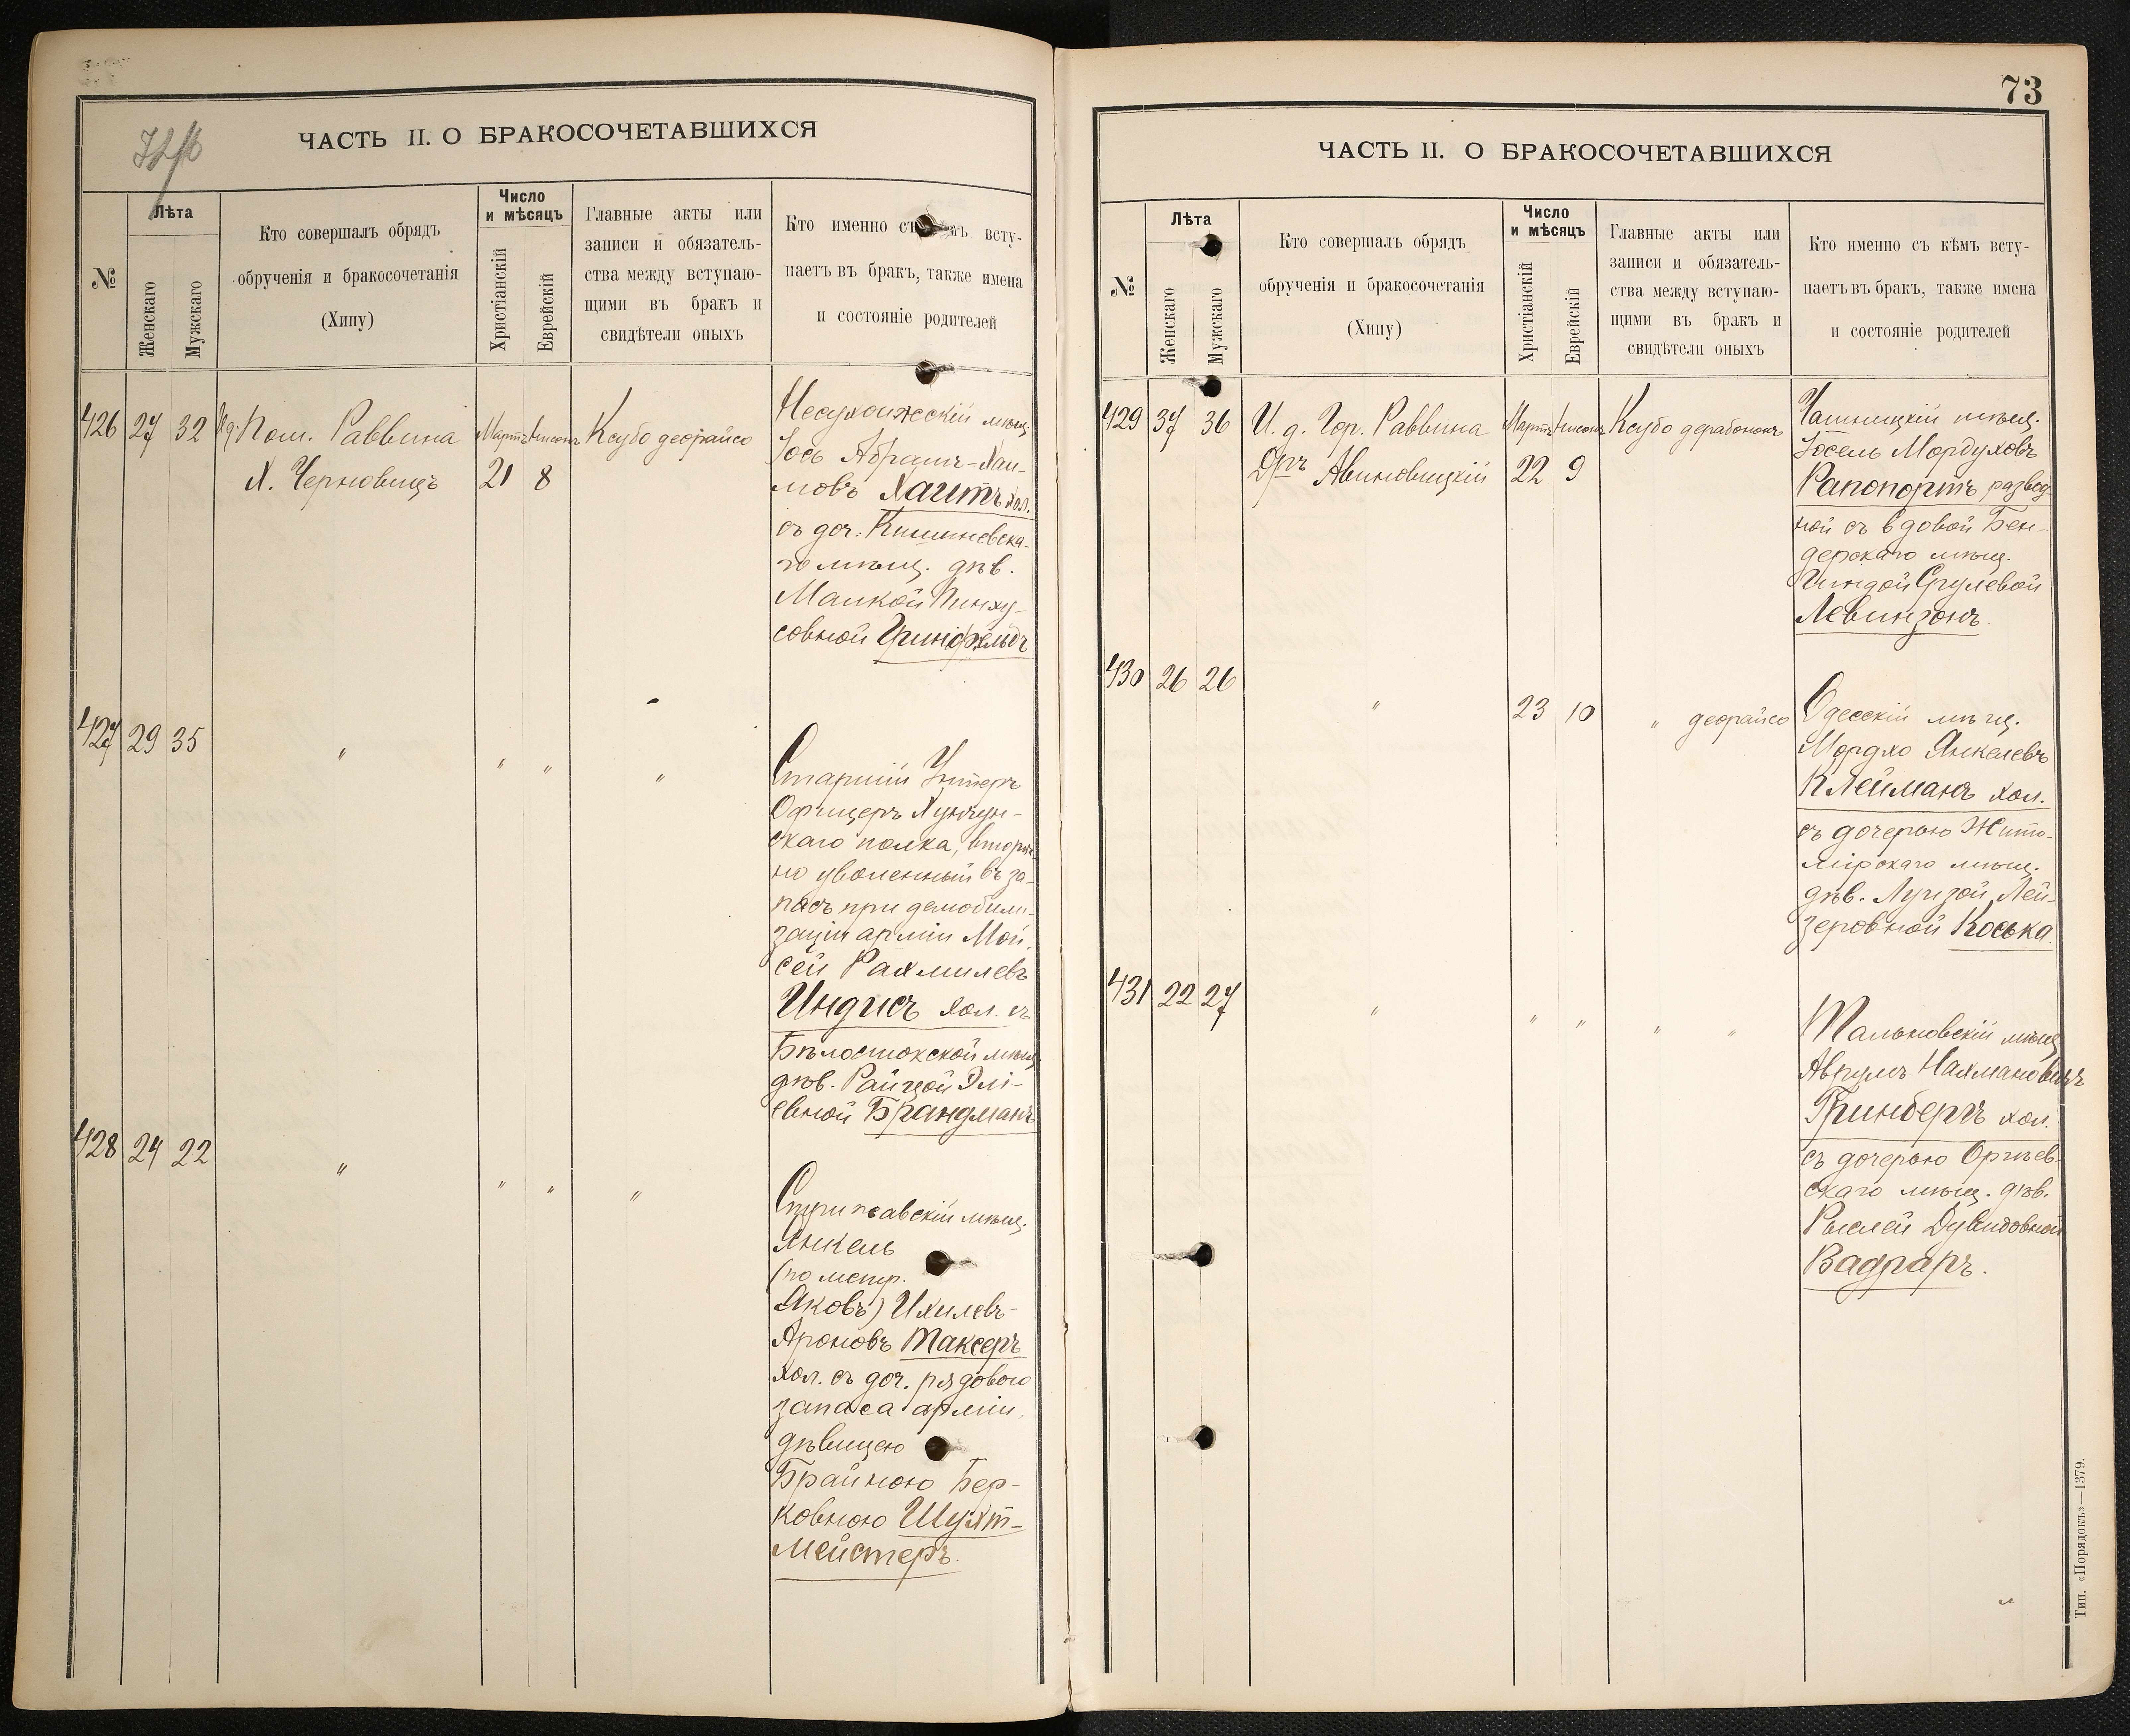 72/б
ЧАСТЬ II. О БРАКОСОЧЕТАВШИХСЯ
№
Лѣта
Женскаго
Мужскаго
Кто совершалъ обрядъ
обрученія и бракосочетанія
(Хипу)
Число
и мѣсяцъ
Христіанскій
Еврейскій
Главные акты или
записи и обязатель-
ства между вступаю-
щими въ бракъ и
свидѣтели оныхъ
Кто именно съ всту-
паетъ въ бракъ, также имена
и состояніе родителей
426 27 32 Пом. Раввина
Х. Черновицъ
Мартъ Нисонъ
21 8
Ксубо деорайсо
мѣщ.
Іось Абрамъ-Хаи-
мовъ Хаитъ хол.
съ доч. Кишиневска-
го мѣщ. дѣв.
Малкой Пинху-
совной Гринфельдъ
427 29 35 " " " "
Старшій Унтеръ
Офицеръ
скаго полка,
но уволенный въ за-
пасъ при демобили-
заціи арміи Мой-
сей Рахмилевъ
Индисъ хол. съ
Бѣлостокской мѣщ.
дѣв. Райцой Элі-
евной Брандманъ
428 24 22 " " " "
мѣщ.
Янкель
(по метр.
Яковъ) Ихилевъ-
Ароновъ Таксеръ
хол. съ доч. рядового
запаса арміи,
дѣвицею
Брайною Бер-
ковною Шухт-
мейстеръ.
73
ЧАСТЬ II. О БРАКОСОЧЕТАВШИХСЯ
№
Лѣта
Женскаго
Мужскаго
Кто совершалъ обрядъ
обрученія и бракосочетанія
(Хипу)
Число
и мѣсяцъ
Христіанскій
Еврейскій
Главные акты или
записи и обязатель-
ства между вступаю-
щими въ бракъ и
свидѣтели оныхъ
Кто именно съ кѣмъ всту-
паетъ въ бракъ, также имена
и состояніе родителей
429 37 36 И. д. Гор. Раввина
Дръ Авиновицкій
Мартъ Нисонъ
22 9
Ксубо дерабононъ
Чашницкій мѣщ.
Іосель Мордуховъ
Рапопортъ развод-
ной съ вдовой Бен-
дерскаго мѣщ.
Гиндой Срулевой
Левинзонъ.
430 26 26 " 23 10 " деорайсо
Одесскій мѣщ.
Мордхо Янкелевъ
Клейманъ хол.
съ дочерью Жито-
мірскаго мѣщ.
дѣв. Луизой Лей-
зеровной Коська
431 22 27 " " " " "
Тальновскій мѣщ.
Аврумъ Нахмановичъ
Гринбергъ хол.
съ дочерью Оргѣев-
скаго мѣщ. дѣв.
Рыслей Дувидовной
Вадраръ.
Тип. «Порядокъ»—1379.